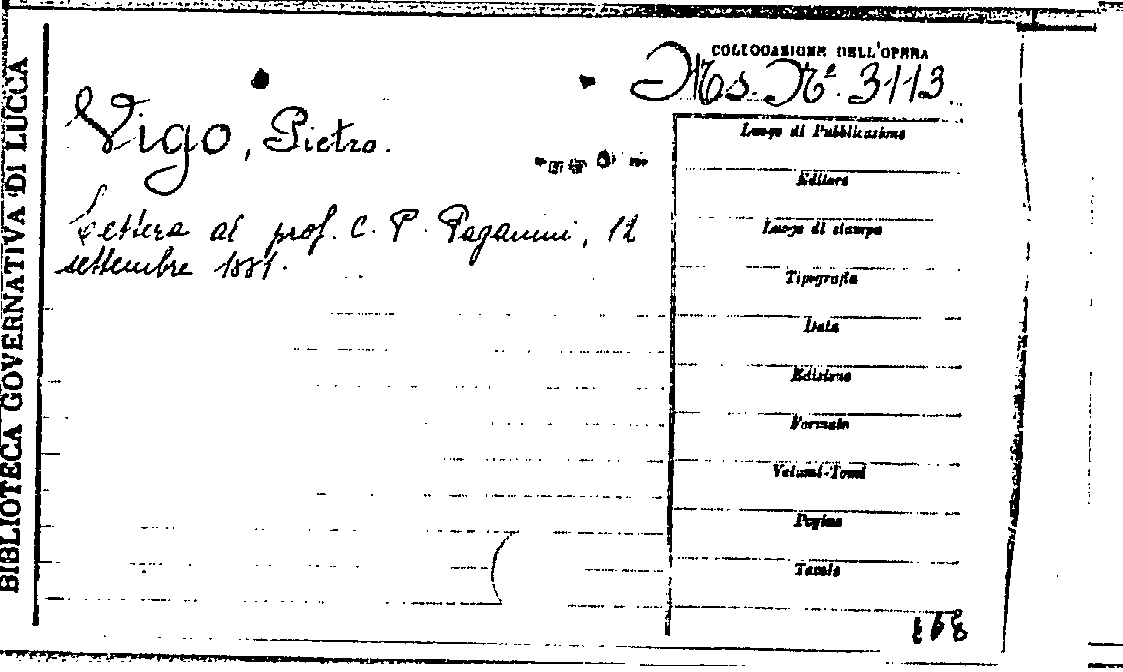 BIBLIOTECA GOVERNATIVA DI LUCCA
COLLOCAZIONE DELL'OPERA
Ms. Nº. 3113
Vigo, Pietro.
Lettera al prof. C. P. Paganini, 12
settembre 1881.
Luogo di Pubblicazione
Editore
Luogo di stampa
Tipografia
Data
Edizione
Formato
Volumi-Tomi
Pagine
Tavole